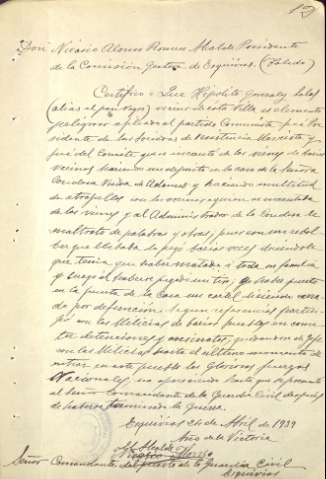 Don Nicasio Alonso Romero Alcalde Presidente
de la Comisión Gestora de Esquivias. (Toledo)
Certifico: Que Hipólito Gonzalez Salas
(alias el pan ) vecino de esta Villa es elemento
peligroso afiliado al partido Comunista, fue Pre
sidente de las de Resistencia Marxista y
jefe del Comité que se incautó de los vinos de varios
vecinos haciendo un deposito en la casa de la Señora
Condesa Viuda de y haciendo multitud
de atropellos con los vecinos quien se incautaba
de los vinos y al Administrador de la Condesa le
maltrató de palabras y obras, pues con un revol
ver que llevaba le pegó varias veces diciendole
que tenia que haber matado a toda su familia
y luego al haberle pegado un tiro, haber puesto
en la puerta de la Casa un cartel diciendo cerra
do por defunción. Segun referencias partici
pó con las Milicias de varios pueblos en come
ter detenciones y asesinatos, de Jefe
con las Milicias hasta el ultimo momento de
entrar en este pueblo las Gloriosas fuerzas
Nacionales, no apareciendo hasta que se presentó
al Señor Comandante de la Guardia Civil despues
de haber terminado la Guerra.
Esquivias 26 de Abril de 1939
Año de la Victoria
El Alcalde
Nicasio Alonso
Señor Comandante del puesto de la Guardia Civil
Esquivias